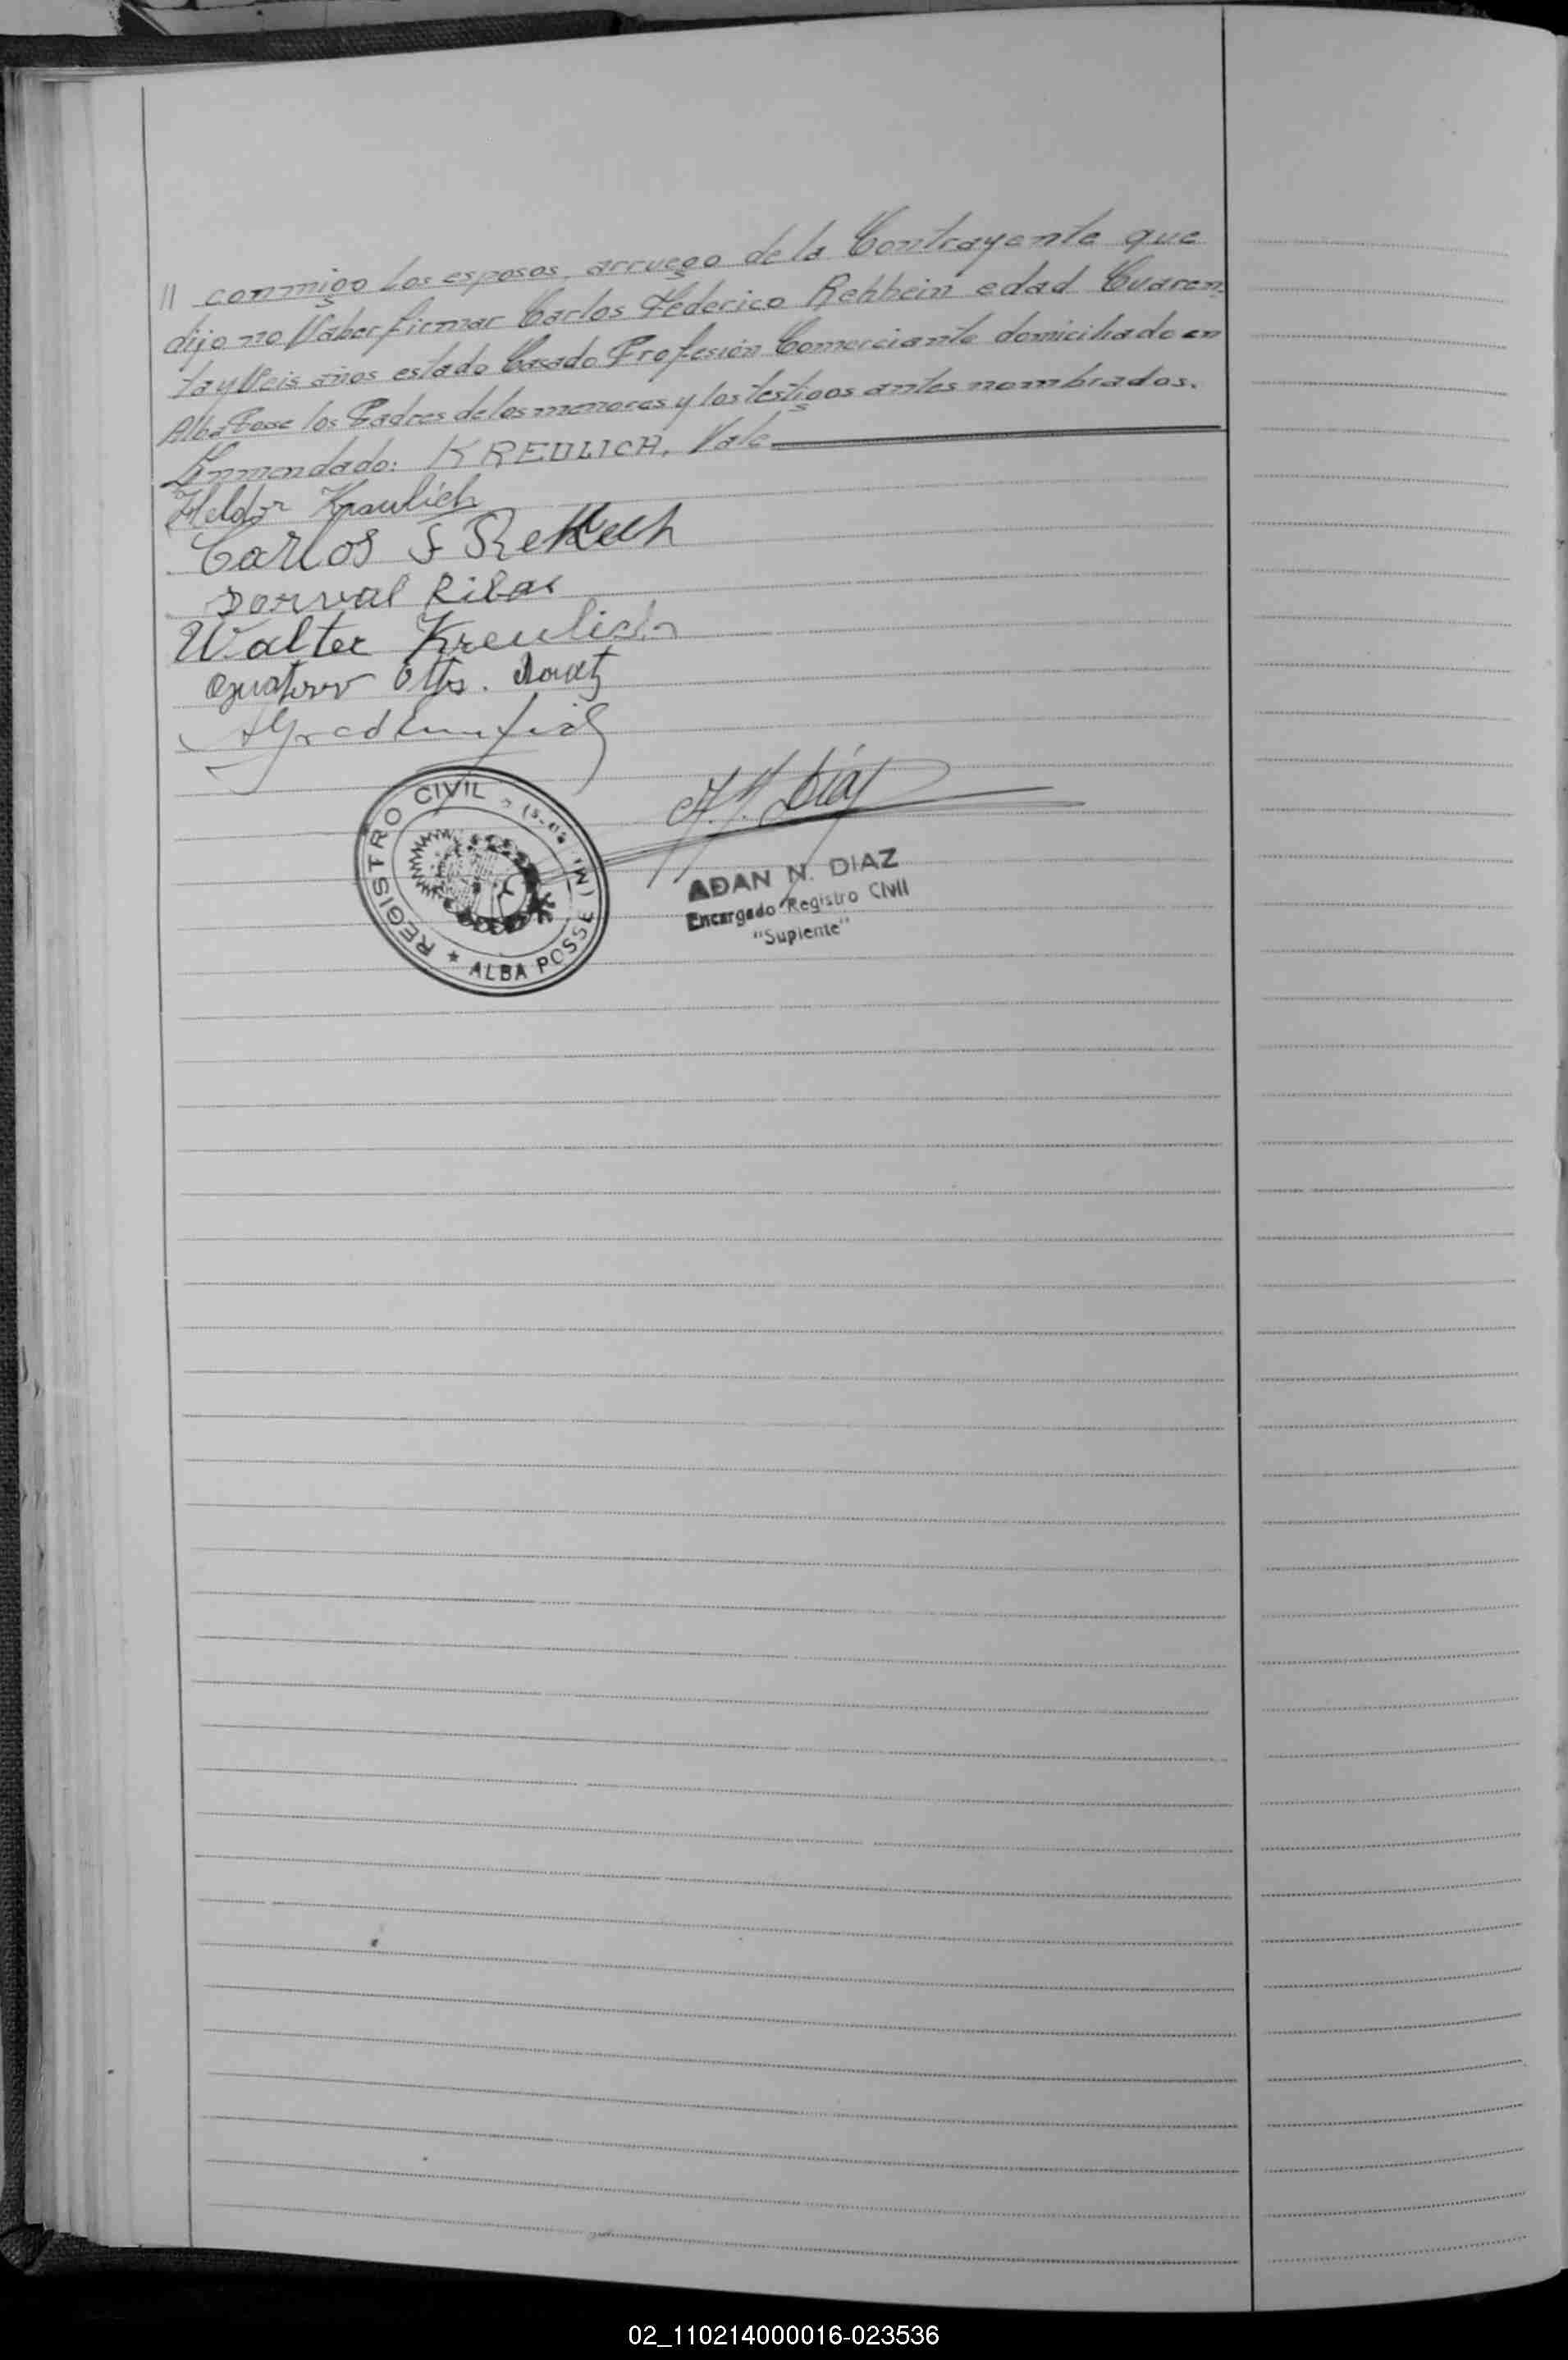 // conmigo los esposos, arruego de la Contrayente que
dijo no Saber firmar Carlos Federico Rehbein edad Cuaren
taySeis años estado Casado Profesión Comerciante domiciliado en
Alba Posse los Padres de los menores y los testigos antes nombrados.
Enmendado: KREULICH, Vale
Heldor Kraulich
Carlos F Rehbein
Dorval Ribas
Walter Kreulich
Otto.
A. N. Díaz
REGISTRO CIVIL
★ ALBA POSSE (M
ADAN N. DIAZ
Encargado Registro Civil
"Suplente"
02_110214000016-023536